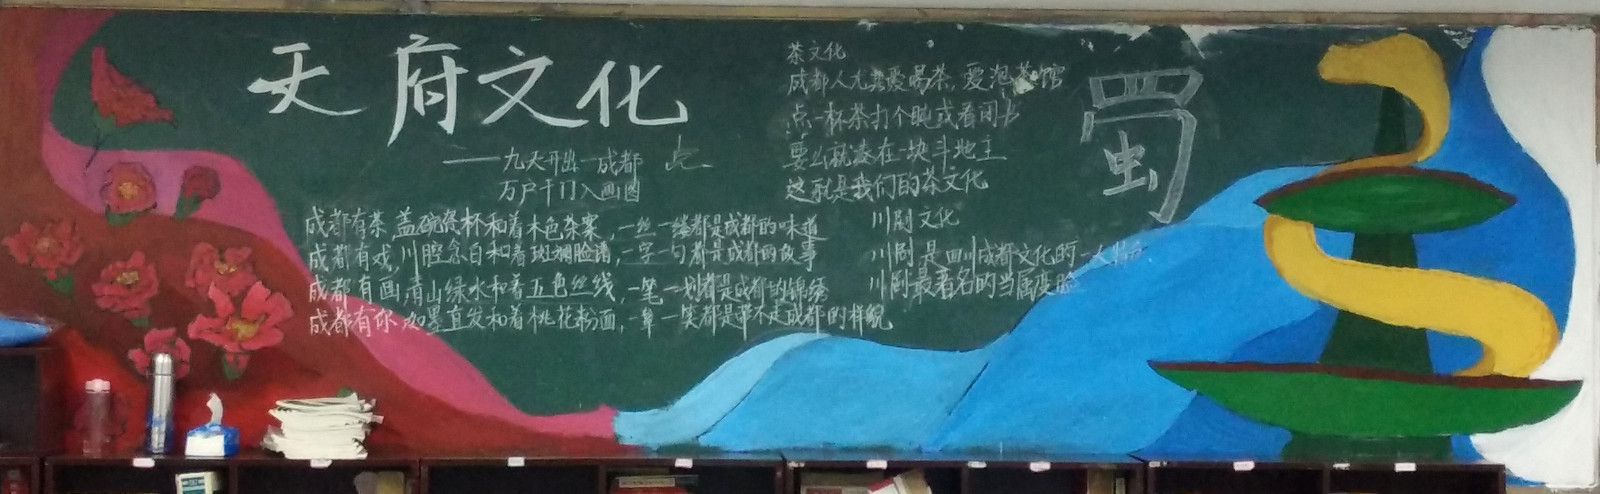 天府文化
——九天开出一成都
万户千门入画图
成都有茶,盖碗瓷杯和着木色茶案,一丝一缕都是成都的味道
成都有戏,川腔念白和着斑斓脸谱,一字一句都是成都的故事
成都有画,青山绿水和着五色丝线,一笔一划都是成都的锦绣
成都有你,如墨直发和着桃花粉面,一颦一笑都是带不走成都的样貌
茶文化
成都人尤其爱喝茶,爱泡茶馆
点一杯茶打个盹或看闲书
要么就凑在一块斗地主
这就是我们的茶文化
川剧文化
川剧是四川成都文化的一大
川剧最著名的当属变脸
蜀